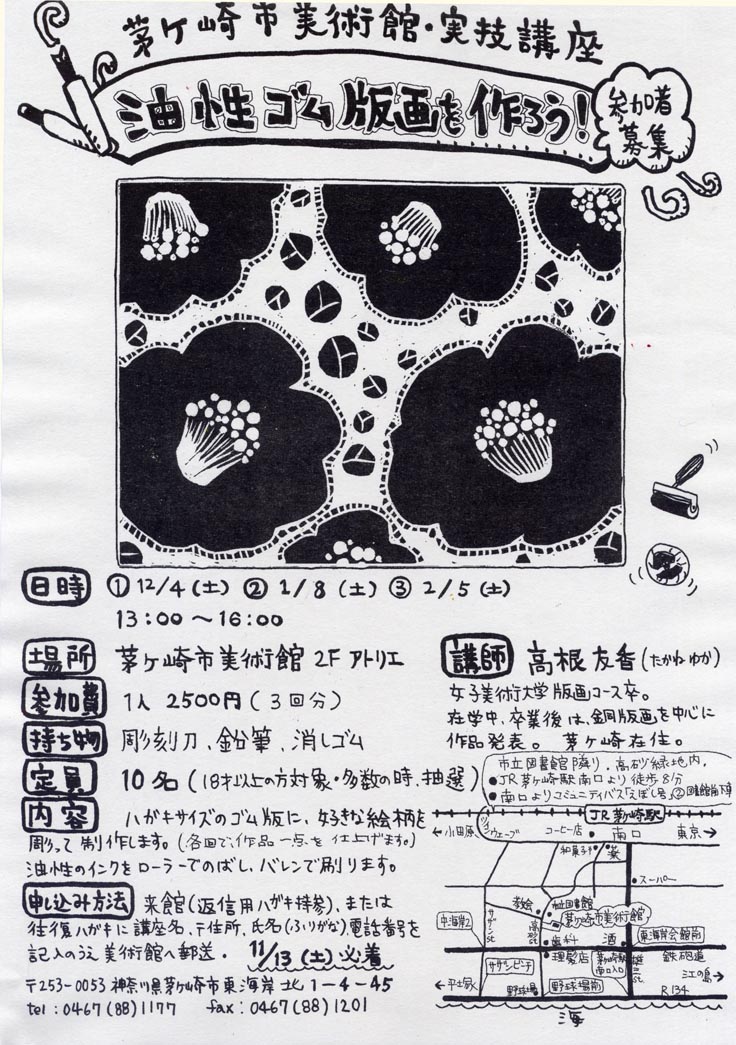 茅ケ崎市美術館・実技講座
油性ゴム版画を作ろう!
参加者
募集
日時 ①12/4(土) ②1/8(土) ③2/5(土)
13:00〜16:00
場所 茅ヶ崎市美術館 2F アトリエ
参加費 1人 2500円(3回分)
持ち物 彫刻刀、鉛筆、消しゴム
定員 10名(18才以上の方対象・多数の時、抽選)
内容 ハガキサイズのゴム版に、好きな絵柄を
彫って制作します。(各回で、作品一点を仕上げます。)
油性のインクをローラーでのばし、バレンで刷ります。
申し込み方法 来館(返信用ハガキ持参)、または
往復ハガキに講座名、〒住所、氏名(ふりがな)、電話番号を
記入のうえ美術館へ郵送。 11/13(土)必着
〒253-0053 神奈川県茅ヶ崎市東海岸北1-4-45
tel:0467(88)1177 fax:0467(88)1201
講師 高根友香(たかね ゆか)
女子美術大学版画コース卒。
在学中、卒業後は、銅版画を中心に
作品発表。 茅ヶ崎在住。
市立図書館隣り、高砂緑地内。
●JR茅ヶ崎駅南口より徒歩8分
●南口よりコミュニティバス「えぼし号」② 図書館前下車
JR茅ヶ崎駅
←小田原
コーヒー店
南口
東京→
和菓子
スーパー
教会
市立図書館
茅ヶ崎市美術館
中海岸2
サザンst
高砂st
歯科
酒
東海岸会館前
理髪店
茅ヶ崎駅南口入口
雄三st
鉄砲道
サザンビーチ
江の島→
←平塚
野球場
野球場前
R134
海